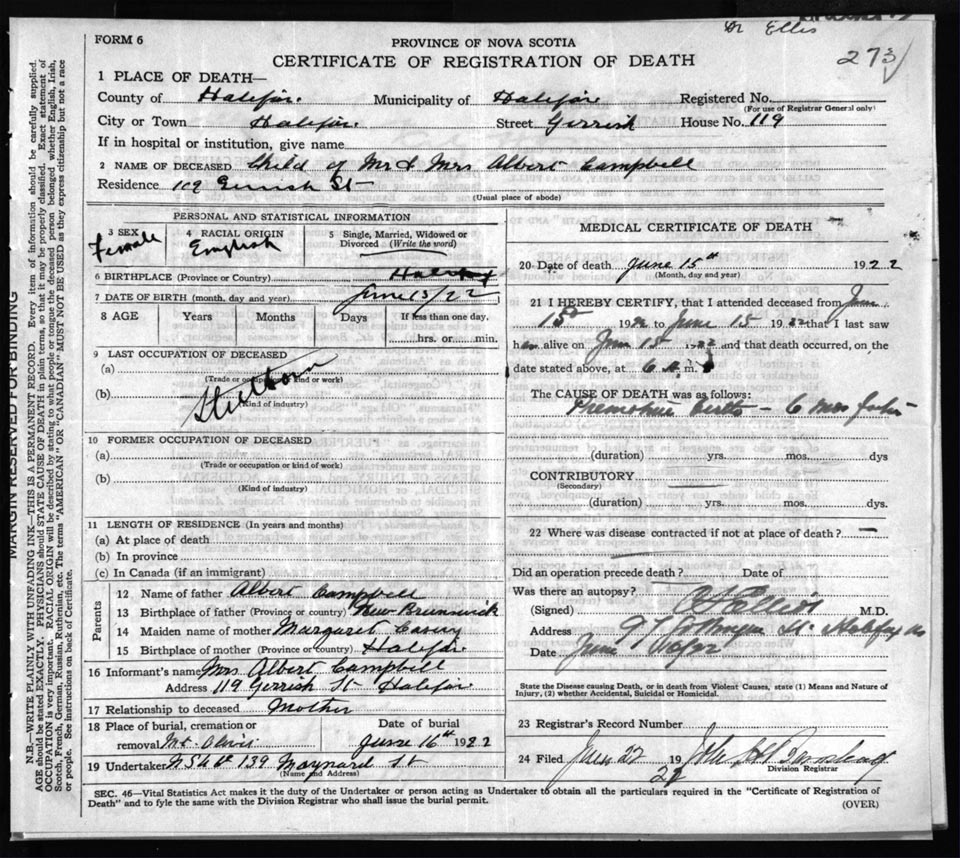 Dr Ellis
273
FORM 6
PROVINCE OF NOVA SCOTIA
CERTIFICATE OF REGISTRATION OF DEATH
1 PLACE OF DEATH—
County of Halifax. Municipality of Halifax Registered No.
(For use of Registrar General only)
City or Town Halifax. Street Gerrish House No. 119
If in hospital or institution, give name
2 NAME OF DECEASED Child of Mr & Mrs Albert Campbell
Residence St
(Usual place of abode)
PERSONAL AND STATISTICAL INFORMATION
3 SEX 4 RACIAL ORIGIN 5 Single, Married, Widowed or
Female English Divorced (Write the word)
6 BIRTHPLACE (Province or Country) Halifax
7 DATE OF BIRTH (month, day and year) June 15/22
8 AGE Years Months Days If less than one day,
hrs. or min.
9 LAST OCCUPATION OF DECEASED
(a)
(Trade or occupation or kind of work)
(b) Stillborn
(Kind of industry)
10 FORMER OCCUPATION OF DECEASED
(a)
(Trade or occupation or kind of work)
(b)
(Kind of industry)
11 LENGTH OF RESIDENCE (In years and months)
(a) At place of death
(b) In province
(c) In Canada (if an immigrant)
Parents
12 Name of father Albert Campbell
13 Birthplace of father (Province or country) New Brunswick
14 Maiden name of mother Margaret Casey
15 Birthplace of mother (Province or country) Halifax
16 Informant's name Mrs Albert Campbell
Address 119 Gerrish St Halifax
17 Relationship to deceased Mother
18 Place of burial, cremation or Date of burial
removal Mt. Olivet June 16th 1922
19 Undertaker 139 Maynard St
(Name and Address)
MEDICAL CERTIFICATE OF DEATH
20 Date of death June 15th 1922
(Month, day and year)
21 I HEREBY CERTIFY, that I attended deceased from June
15 1922 to June 15 1922 that I last saw
h alive on June 15 1922 and that death occurred, on the
date stated above, at 6 m.
The CAUSE OF DEATH was as follows:
Premature Birth — 6 mos
(duration) yrs. mos. dys
CONTRIBUTORY
(Secondary)
(duration) yrs. mos. dys.
22 Where was disease contracted if not at place of death?
Did an operation precede death? Date of
Was there an autopsy?
(Signed) M.D.
Address St. Halifax
Date June
State the Disease causing Death, or in death from Violent Causes, state (1) Means and Nature of
Injury, (2) whether Accidental, Suicidal or Homicidal.
23 Registrar's Record Number
24 Filed June 22 1922 John
Division Registrar
SEC. 46—Vital Statistics Act makes it the duty of the Undertaker or person acting as Undertaker to obtain all the particulars required in the "Certificate of Registration of
Death" and to fyle the same with the Division Registrar who shall issue the burial permit.
(OVER)
MARGIN RESERVED FOR BINDING
N.B.—WRITE PLAINLY WITH UNFADING INK—THIS IS A PERMANENT RECORD. Every item of information should be carefully supplied.
AGE should be stated EXACTLY. PHYSICIANS should STATE CAUSE OF DEATH in plain terms, so that it may be properly classified. Exact statement of
OCCUPATION is very important. RACIAL ORIGIN will be described by stating to what people or tongue the deceased person belonged whether English, Irish,
Scotch, French, German, Russian, Ruthenian, etc. The terms "AMERICAN" OR "CANADIAN" MUST NOT BE USED as they express citizenship but not a race
or people. See instructions on back of Certificate.